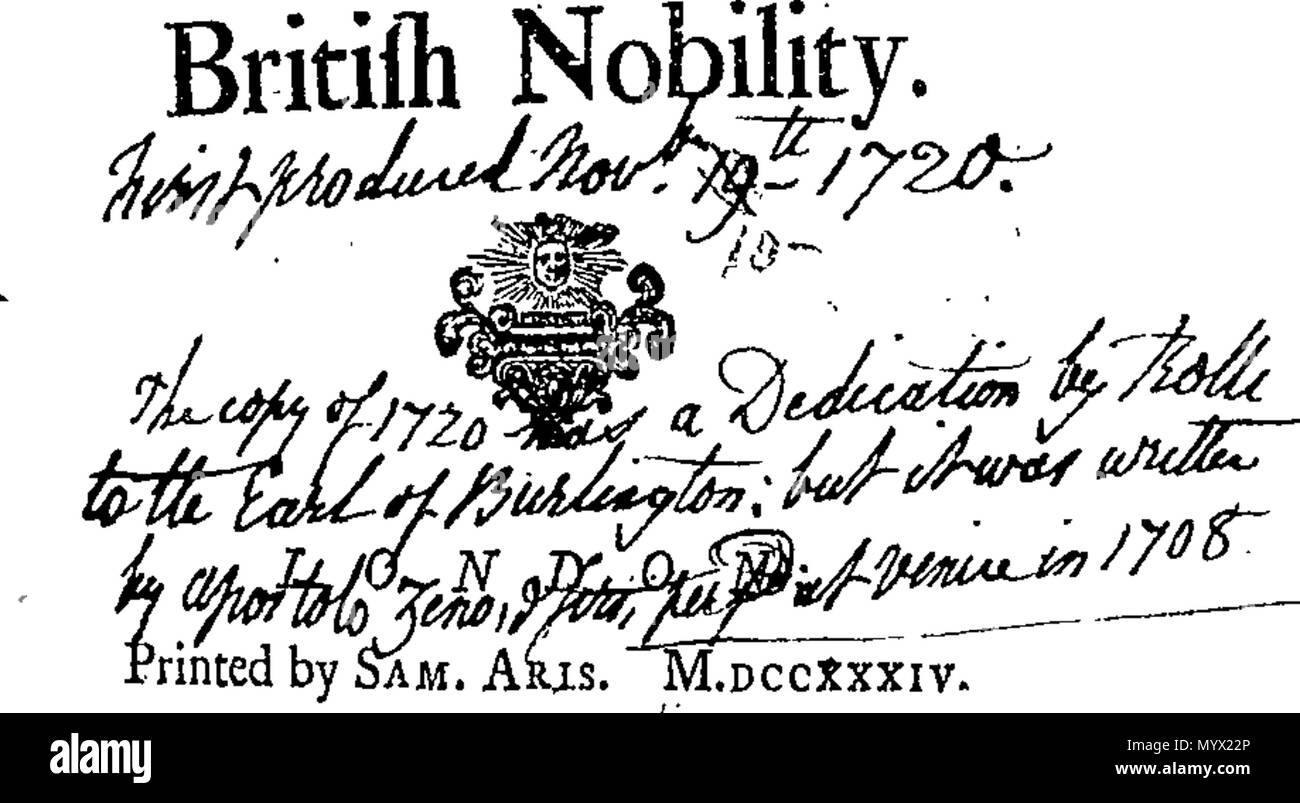 Britiſh Nobility.
First produced Nov.br 19th 1720.
10
The copy of 1720 has a Dedication by Rolli
to the Earl of Burlington: but it was written
by Apostolo Zeno, & first perf at Venice in 1708
LONDON
Printed by SAM. ARIS. M.DCCXXXIV.
alamy
Image ID: MYX22P
www.alamy.com